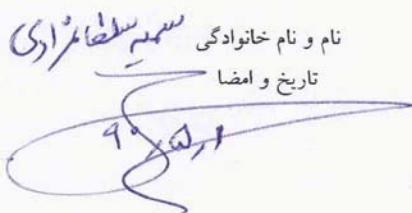 نام و نام خانوادگی سمیه سلطانمرادی
تاریخ و امضا
۹۰/۵/۱